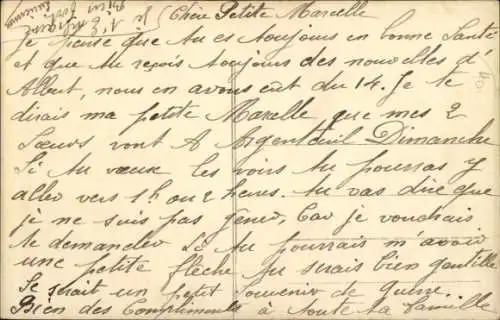 Chère Petite Marcelle
Je pense que tu es toujours en bonne Santé
et que tu reçois toujours des nouvelles d'
Albert, nous en avons eut du 14. Je te
dirais ma petite Marcelle que mes 2
Sœurs vont A Argenteuil Dimanche
Si tu veux les voir tu pourras y
aller vers 1h ou 2 heures. tu vas dire que
je ne suis pas gener, Car je voudrais
te demander Si tu pourrais m'avoir
une petite flèche tu serais bien gentille
Se serait un petit Souvenir de Guerre.
Bien des Compliments à toute ta famille
Je
t'Embrasse
Bien fort